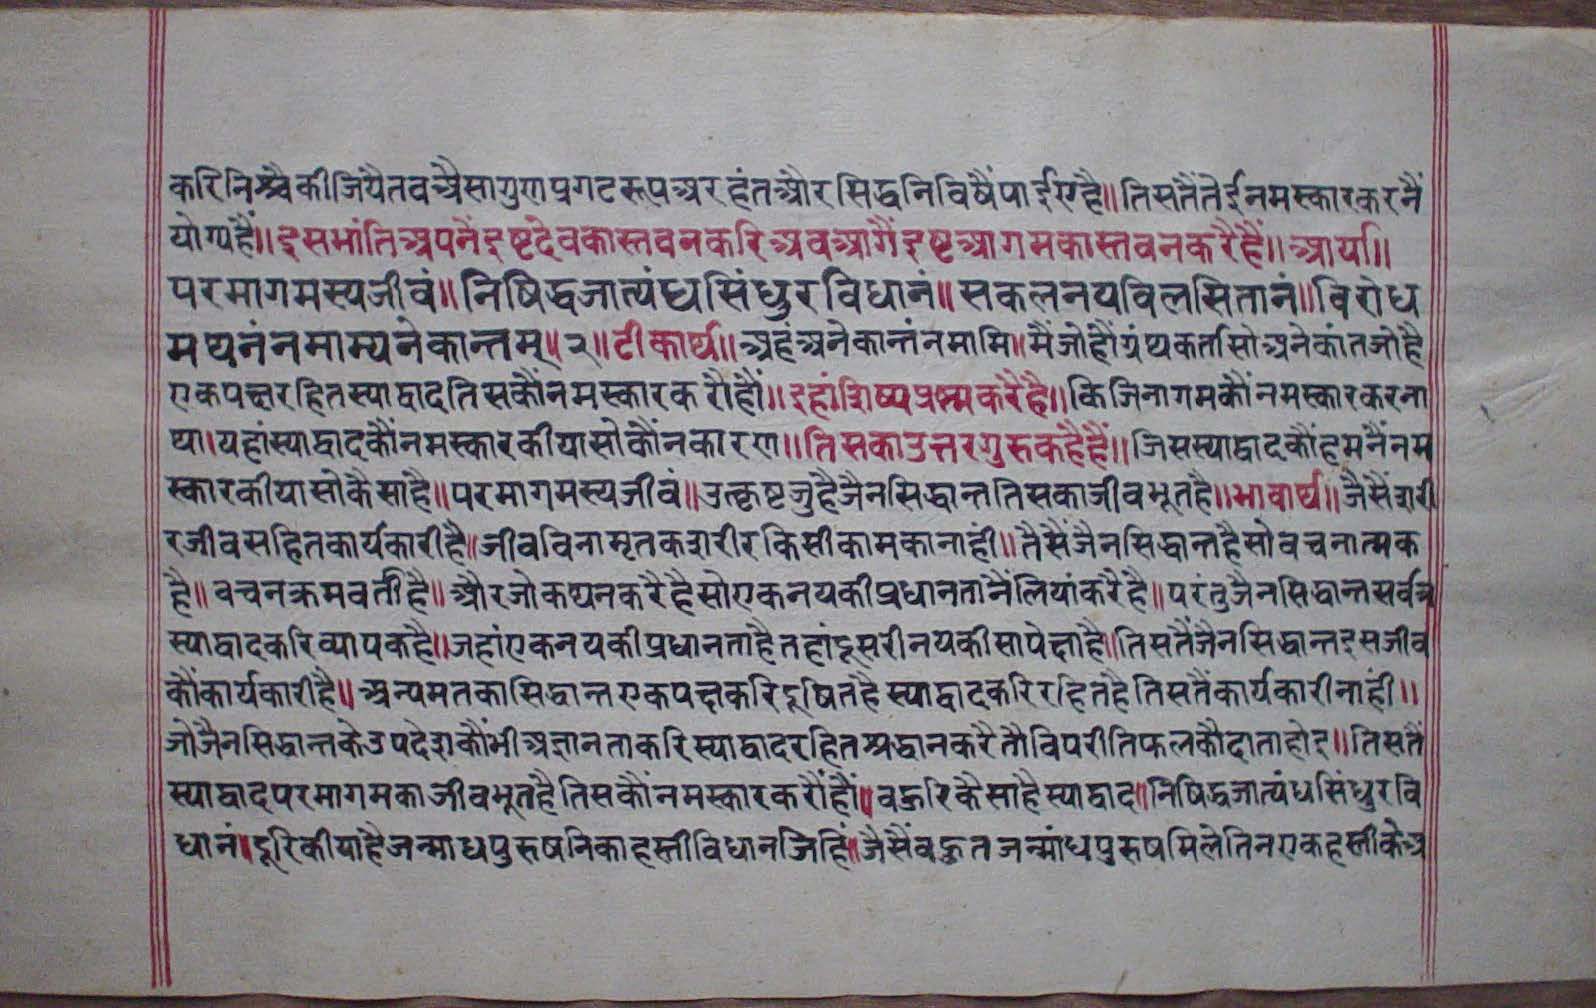 करिनिश्चैकीजियैतवऐसागुणप्रगटरूपअरहंतऔरसिद्धनिविषैंपाईएहै॥तिसतैंतेईनमस्कारकरनैं
योग्यहैं॥इसभांतिअपनैंइष्टदेवकास्तवनकरिअवआगैंइष्टआगमकास्तवनकरैहैं॥आर्या॥
परमागमस्यजीवं॥निषिद्धजात्यंधसिंधुरविधानं॥सकलनयविलसितानं॥विरोध
मथनंनमाम्यनेकान्तम्॥२॥टीकार्थ॥अहंअनेकान्तंनमामि॥मैंजोहौंग्रंथकर्तासोअनेकांतजोहै
एकपक्षरहितस्याद्वादतिसकौंनमस्कारकरौहौं॥इहांशिष्यप्रष्नकरैहै॥किजिनागमकौंनमस्कारकरना
था।यहांस्याद्वादकौंनमस्कारकीयासोकौंनकारण॥तिसकाउत्तरगुरुकहैहैं॥जिसस्याद्वादकौंहमनैंनम
स्कारकीयासोकैसाहै॥परमागमस्यजीवं॥उत्कृष्टजुहैजैनसिद्धान्ततिसकाजीवभूतहै॥भावार्थ॥जैसैंशरी
रजीवसहितकार्यकारीहै॥जीवविनामृतकशरीरकिसीकामकानाहीं॥तैसैंजैनसिद्धान्तहैसोवचनात्मक
है॥वचनक्रमवर्तीहै॥औरजोकथनकरैहैसोएकनयकीप्रधानतानैंलियांकरैहै॥परंतुजैनसिद्धान्तसर्वत्र
स्याद्वादकरिव्यापकहै॥जहांएकनयकीप्रधानताहैतहांदूसरीनयकीसापेक्षाहै॥तिसतैंजैनसिद्धान्तइसजीव
कौंकार्यकारीहै॥अन्यमतकासिद्धान्तएकपक्षकरिदूषितहैस्याद्वादकरिरहितहैतिसतैंकार्यकारीनाहीं॥
जोजैनसिद्धान्तकेउपदेशकौंभीअज्ञानताकरिस्याद्वादरहितश्रद्धानकरैतौविपरीतिफलकौदाताहोइ॥तिसतैं
स्याद्वादपरमागमकाजीवभूतहैतिसकौंनमस्कारकरौंहौं॥वहुरिकैसाहैस्याद्वाद॥निषिद्धजात्यंधसिंधुरवि
धानं॥दूरिकीयांहैजन्माधपुरुषनिकाहस्तीविधानजिहिं॥जैसैंवहुतजन्मांधपुरुषमिलेतिनएकहस्तीकेअ